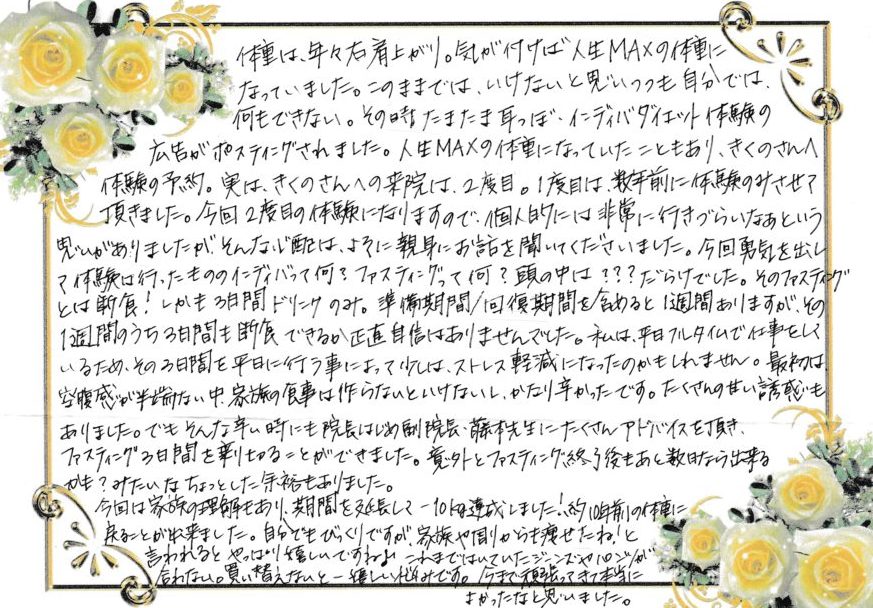 体重は、年々右肩上がり。気が付けば人生MAXの体重に
なっていました。このままでは、いけないと思いつつも自分では、
何もできない。その時たまたま耳つぼ、インディバダイエット体験の
広告がポスティングされました。人生MAXの体重になっていたこともあり、きくのさんへ
体験の予約。実は、きくのさんへの来院は、2度目。1度目は、数年前に体験のみさせて
頂きました。今回2度目の体験になりますので、個人的には非常に行きづらいなあという
思いがありましたが、そんな心配は、よそに親身にお話を聞いてくださいました。今回勇気を出し
て体験は行ったもののインディバって何?ファスティングって何?頭の中は???だらけでした。そのファスティング
とは断食!しかも3日間ドリンクのみ。準備期間/回復期間を含めると1週間ありますが、その
1週間のうち3日間も断食できるか正直自信はありませんでした。私は、平日フルタイムで仕事をして
いるため、その3日間を平日に行う事によって少しは、ストレス軽減になったのかもしれません。最初は、
空腹感が半端ない中、家族の食事は作らないといけないし、かなり辛かったです。たくさんの甘い誘惑も
ありました。でもそんな辛い時にも院長はじめ副院長、藤本先生にたくさんアドバイスを頂き、
ファスティング3日間を乗りきることができました。意外とファスティング終了後もあと数日なら出来る
かも?みたいなちょっとした余裕もありました。
今回は家族の理解もあり、期間を延長して-10kg達成しました!約10年前の体重に
戻ることが出来ました。自分でもびっくりですが、家族や周りからも痩せたね!と
言われるとやっぱり嬉しいですねよ これまではいていたジーンズやパンツが
合わない。買い替えないと…嬉しい悩みです。今まで頑張ってきて本当に
よかったなと思いました。